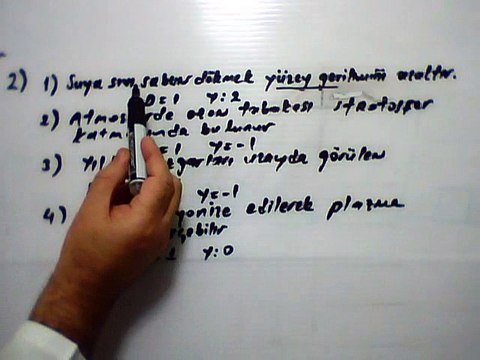 2) 1) Suya sıvı sabun dökmek yüzey gerilimini azaltır.
D=1 Y:2
2) Atmosferde ozon tabakası stratosfer
katmanında bulunur
=1 Y=-1
3) uzayda görülen
Y=-1
4) iyonize edilerek plazma
Y:0